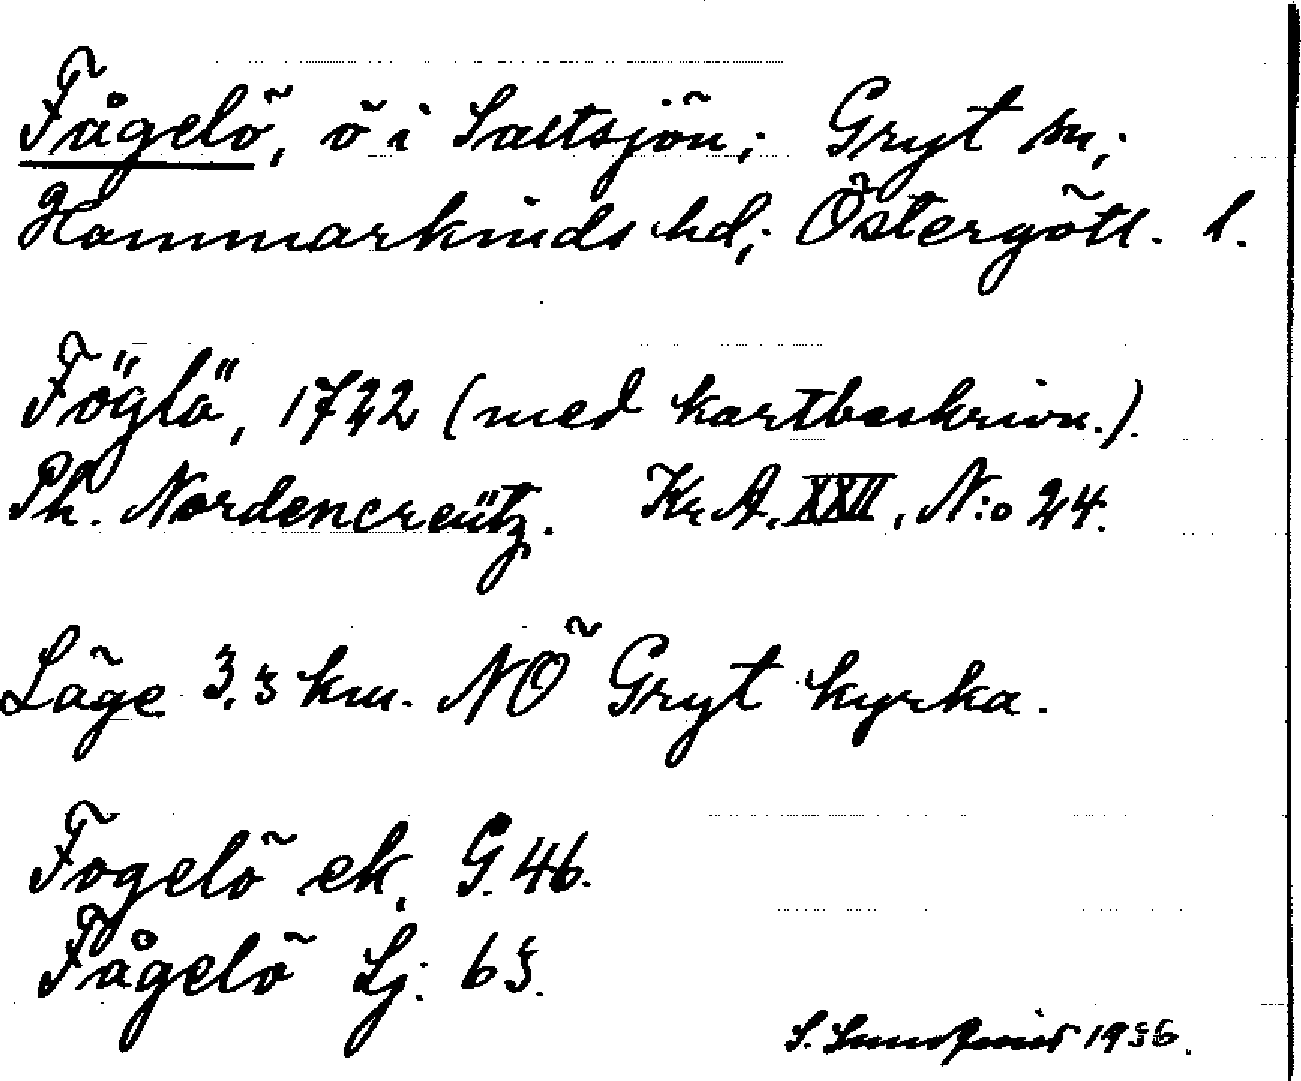 Fågelö, ö i Saltsjön; Gryt sn;
Hammarkinds hd; Östergötl. l.
Föglö, 1722 (med kartbeskrivn.).
Ph. Nordencreütz. Kr. A. XXII, N:o 24.
Läge 3.5 km. NÖ Gryt kyrka.
Fogelö ek. G. 46.
Fågelö Lj. 65.
S. 1936.